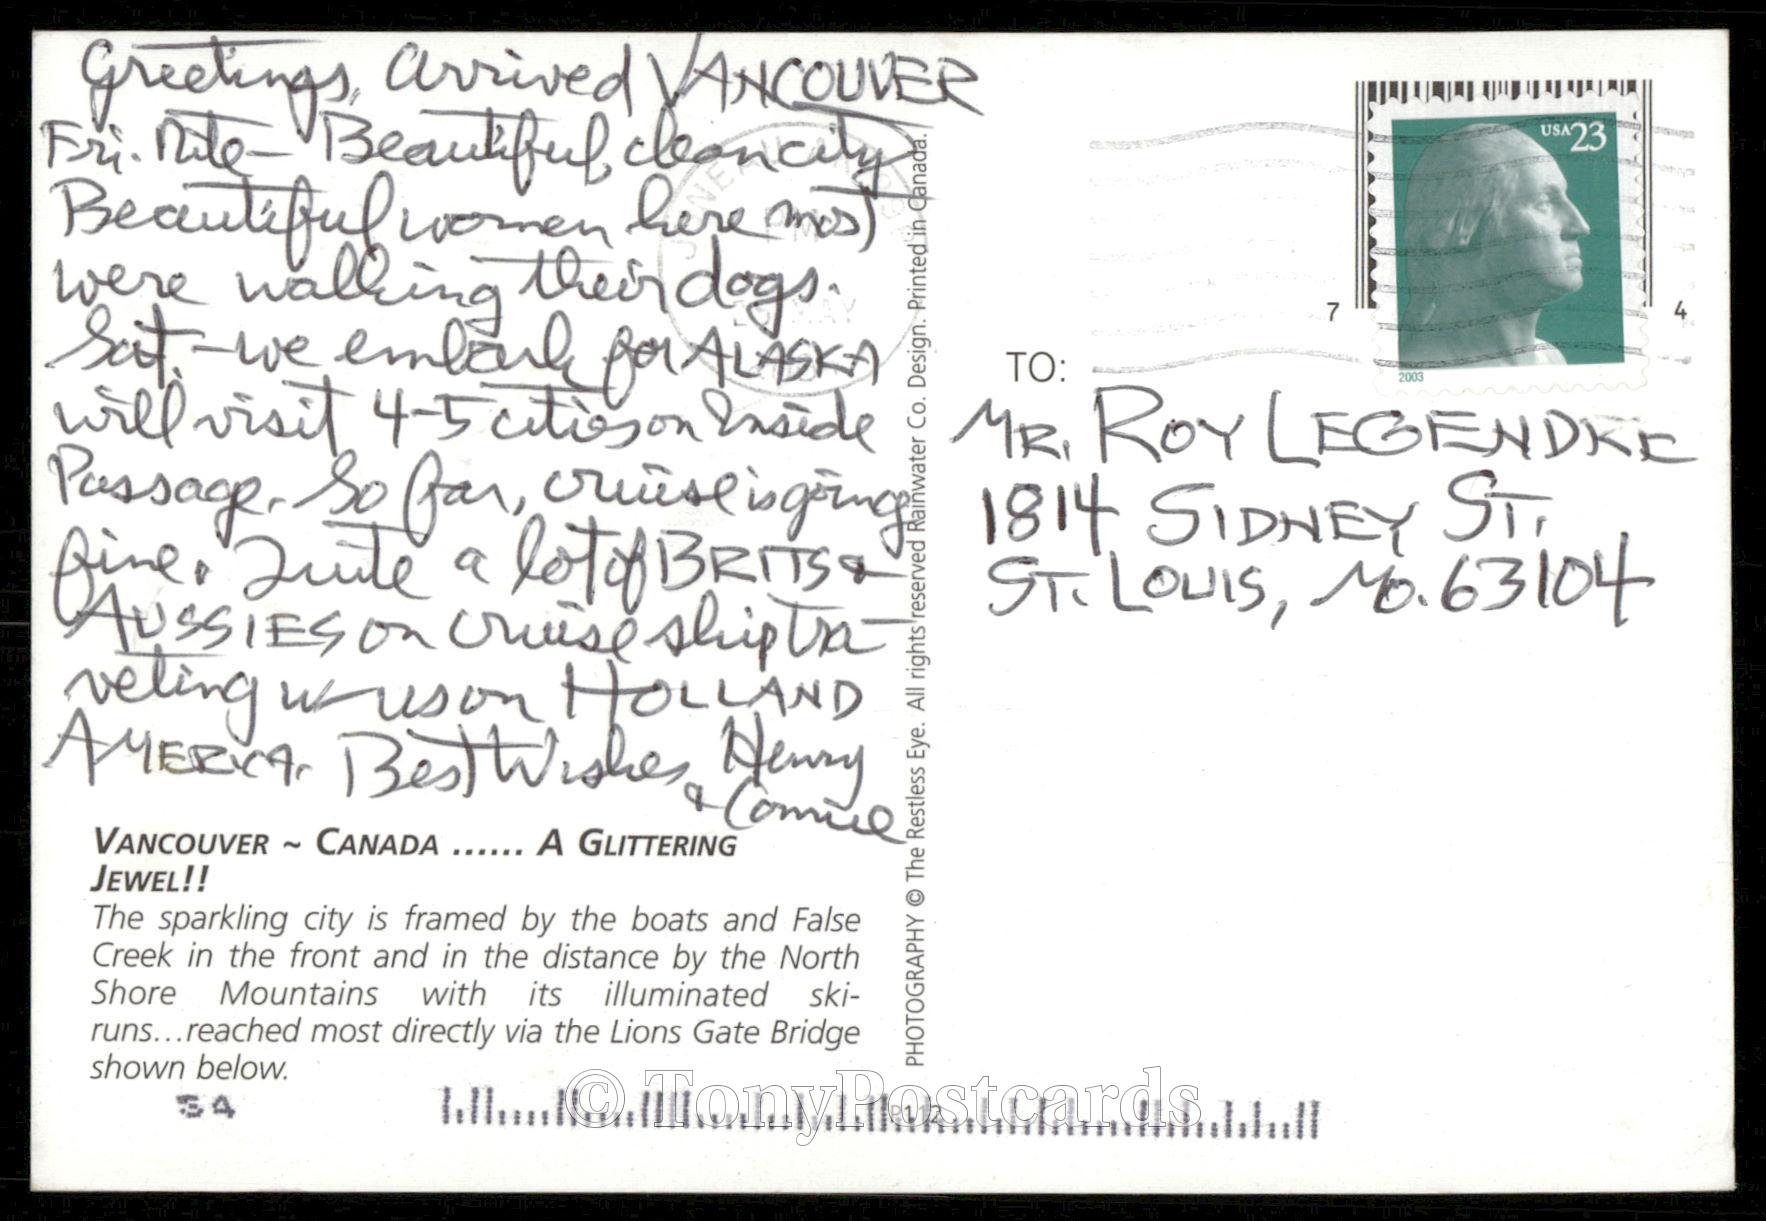 Greetings, Arrived VANCOUVER
Fri. Nite — Beautiful, clean city
Beautiful women here most
were walking their dogs.
Sat. — we embark for ALASKA
will visit 4-5 cities on Inside
Passage. So far, cruise is going
fine. Quite a lot of BRITS &
AUSSIES on cruise ship tra-
veling w us on HOLLAND
AMERICA. Best Wishes, Henry
& Connie
VANCOUVER ~ CANADA ...... A GLITTERING
JEWEL!!
The sparkling city is framed by the boats and False
Creek in the front and in the distance by the North
Shore Mountains with its illuminated ski-
runs...reached most directly via the Lions Gate Bridge
shown below.
34
PHOTOGRAPHY © The Restless Eye. All rights reserved Rainwater Co. Design. Printed in Canada.
JUNEAU
MAY
USA 23
2003
7 4
TO:
MR. ROY LEGENDRE
1814 SIDNEY ST.
ST. LOUIS, MO. 63104
© TonyPostcards
P112